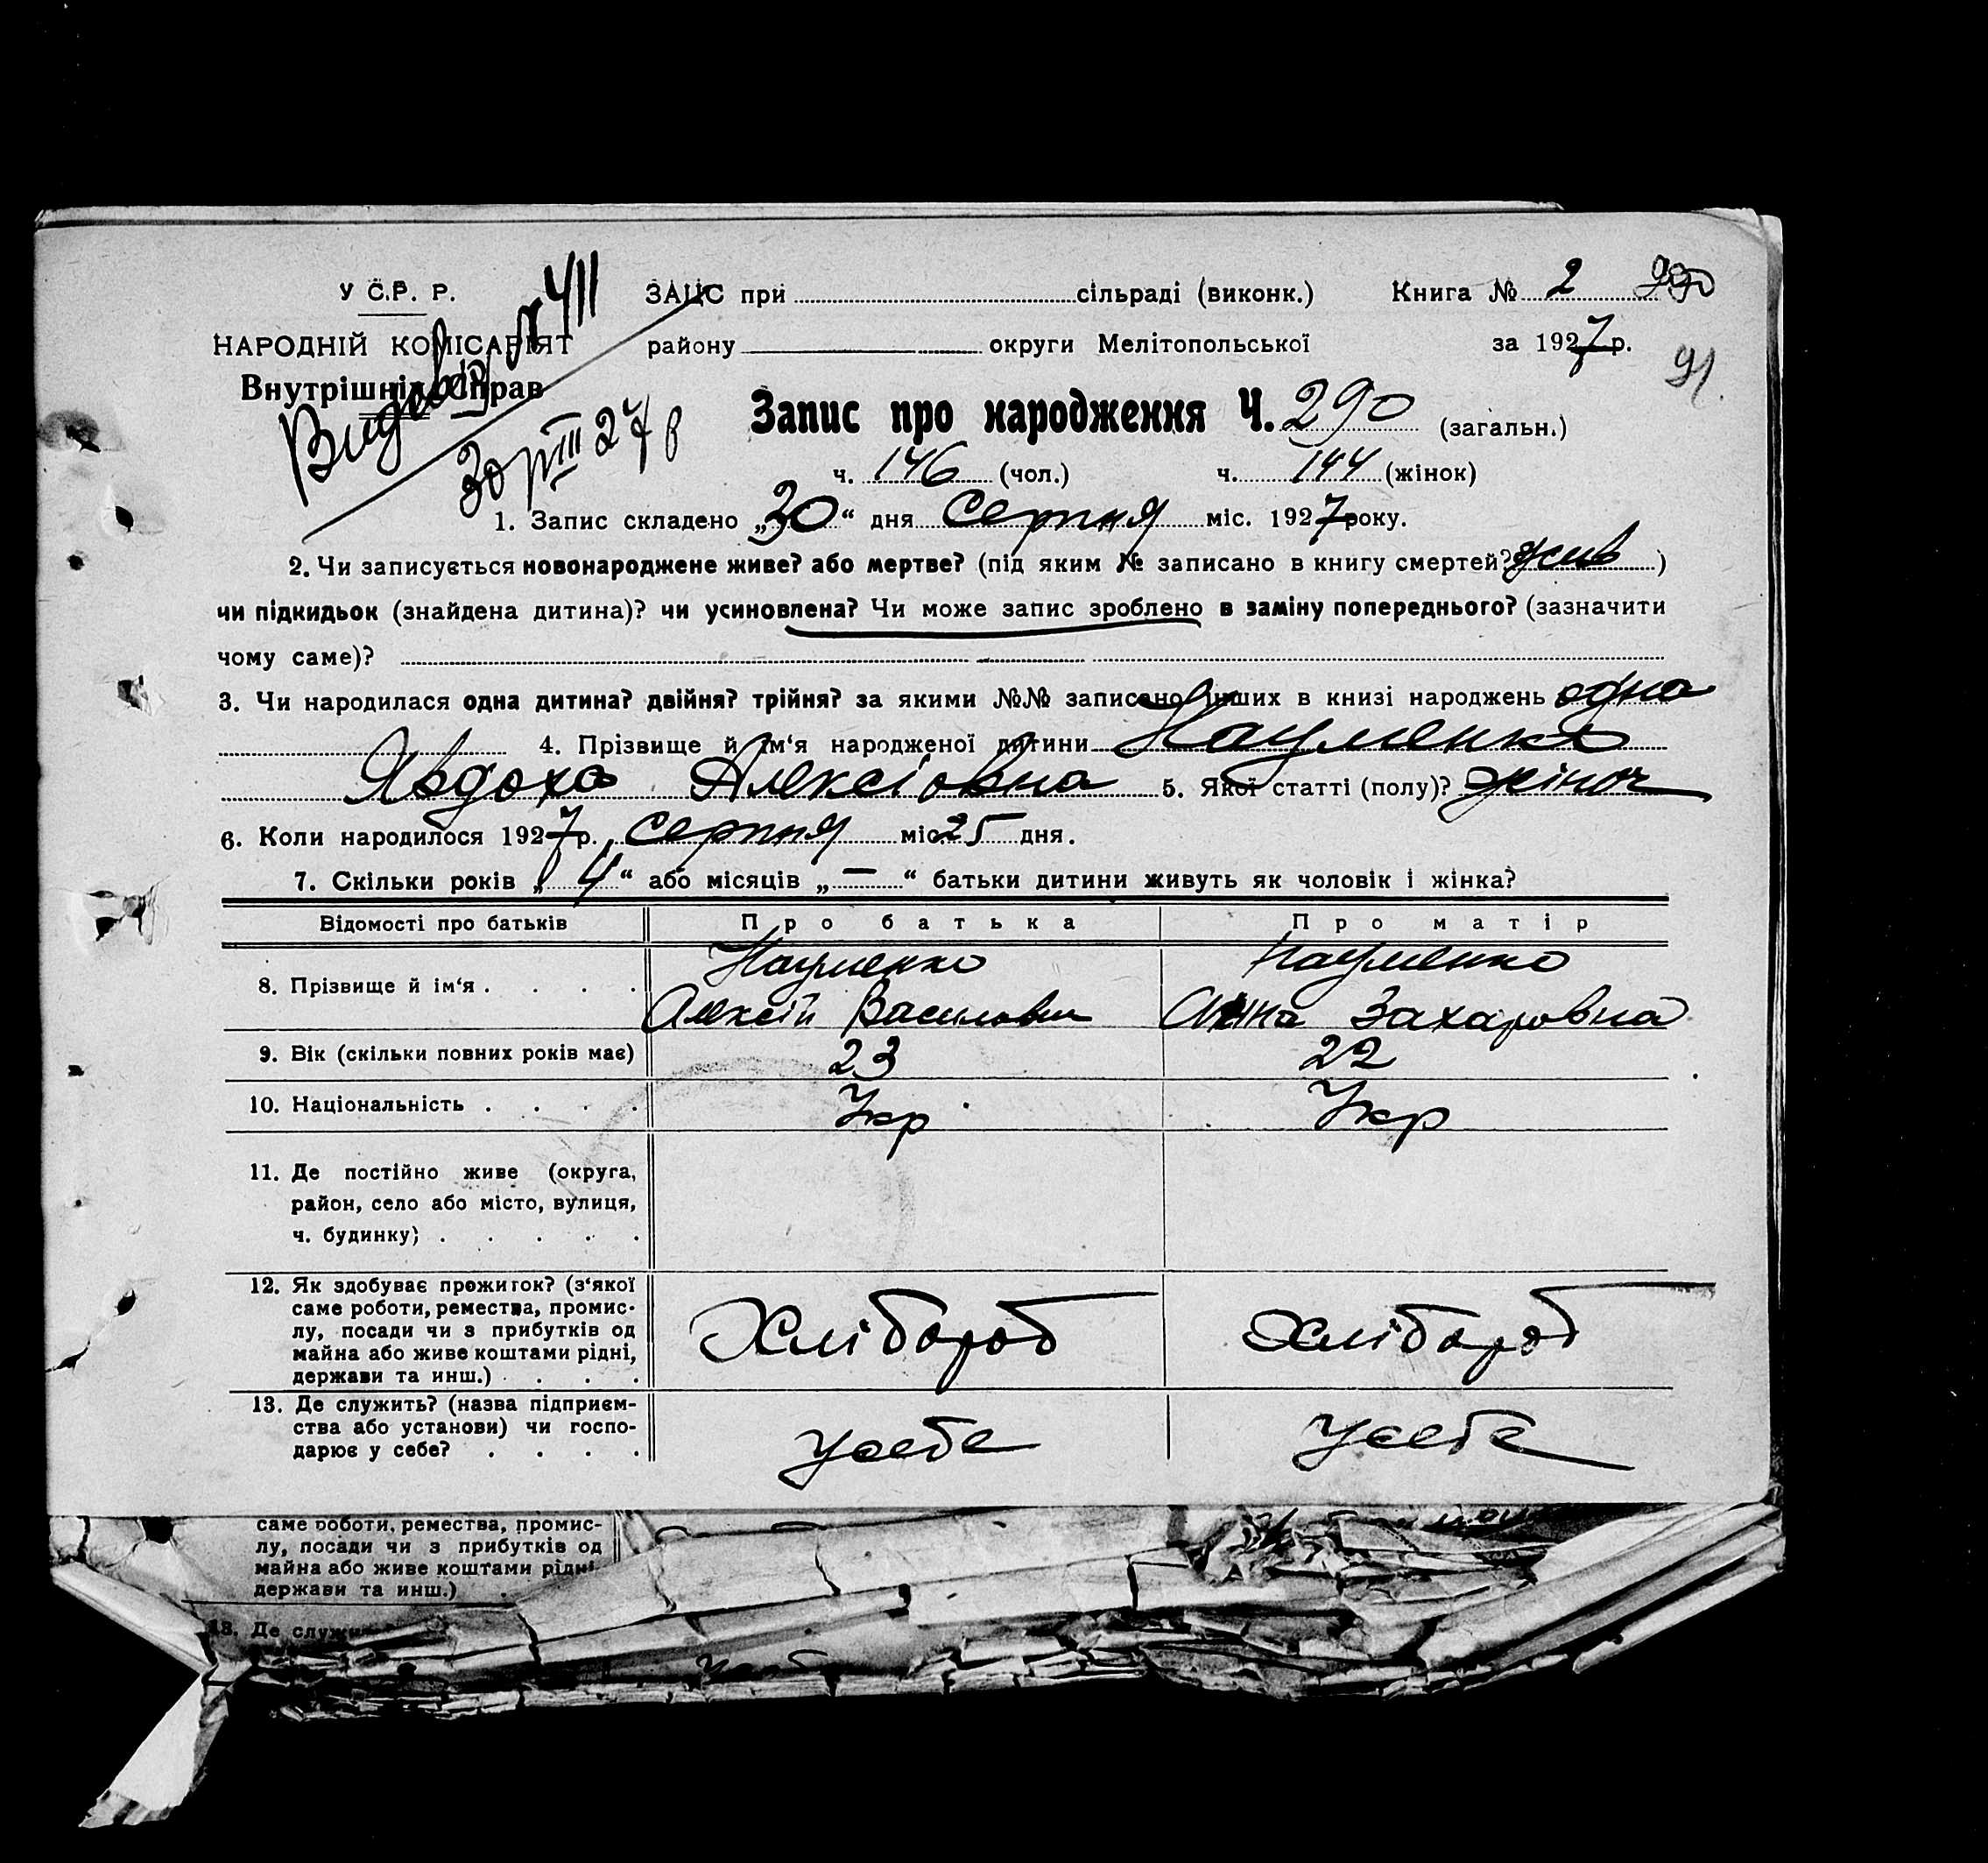 У С.Р. Р.
НАРОДНІЙ КОМІСАРІЯТ
Внутрішніх Справ
№ 411
30/VIII 27 р
ЗАЦС при сільраді (виконк.) Книга № 2 290
району округи Мелітопольської за 1927 р.
91
Запис про народження Ч. 290 (загальн.)
ч. 146 (чол.) ч. 144 (жінок)
1. Запис складено „30“ дня Серпня міс. 1927 року.
2. Чи записується новонароджене живе? або мертве? (під яким № записано в книгу смертей? жив)
чи підкидьок (знайдена дитина)? чи усиновлена? Чи може запис зроблено в заміну попереднього? (зазначити
чому саме)?
3. Чи народилася одна дитина? двійня? трійня? за якими №№ записано інших в книзі народжень одна
4. Прізвище й ім‘я народженої дитини Науменко
Явдоха Алексіовна 5. Якої статті (полу)? жіноч
6. Коли народилося 1927 р. серпня міс. 25 дня.
7. Скільки років „4“ або місяців „—“ батьки дитини живуть як чоловік і жінка?
Відомості про батьків Про батька Про матір
8. Прізвище й ім‘я . . . . Науменко Науменко
Алексій Василович Анна Захаровна
9. Вік (скільки повних років має) 23 22
10. Національність . . . . Укр Укр
11. Де постійно живе (округа,
район, село або місто, вулиця,
ч. будинку; . . . . .
12. Як здобуває прожиток? (з‘якої
саме роботи, ремества, промис-
лу, посади чи з прибутків од
майна або живе коштами рідні,
держави та инш.) . . . . Хлібороб Хлібороб
13. Де служить? (назва підприєм-
ства або установи) чи госпо-
дарює у себе? . . . . У себе У себе
саме роботи, ремества, промис-
лу, посади чи з прибутків од
майна або живе коштами рідні
держави та инш.) .
13. Де служи